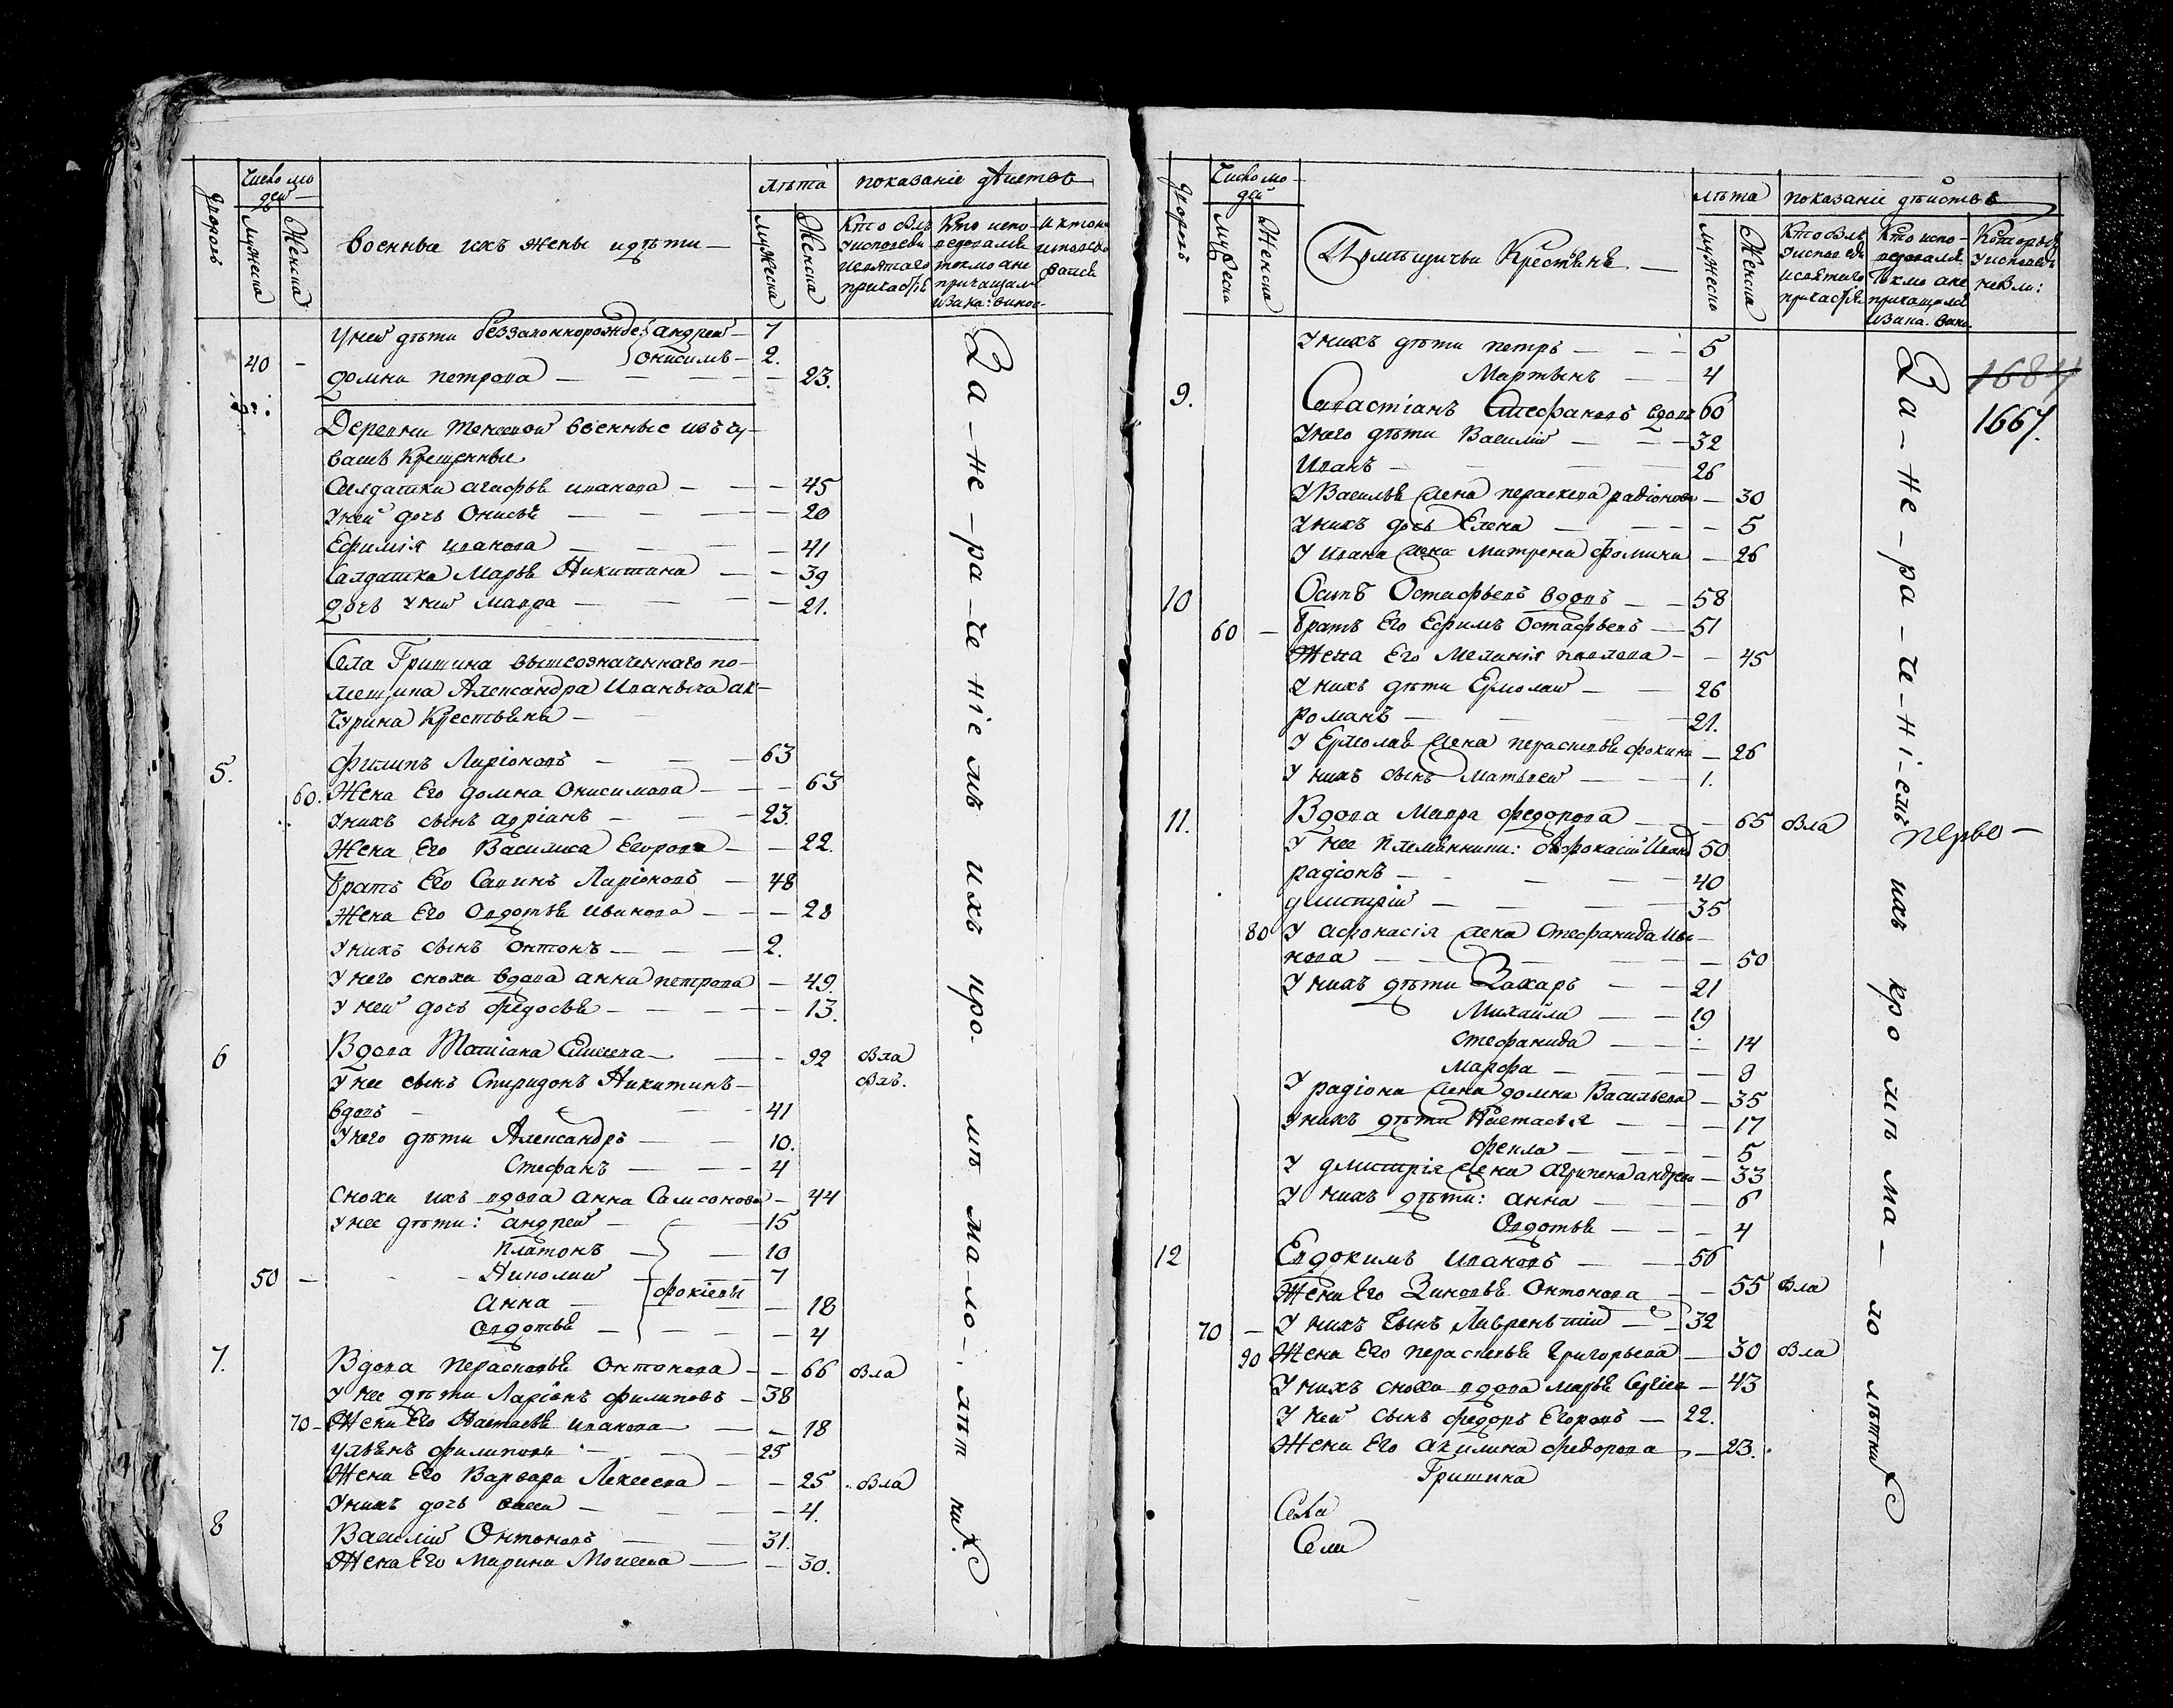 дворовъ
Число лю
дей
мужеска
Женска
военные ихъ жены идѣти —
лѣта
мужеска
Женска
показаніе дѣиства
Кто был
уисповеди
исвятаго
причастія
Кто испо-
ведовалис
токмо ане
причащал
изка: винос-
у ней дѣти беззаконнорожде: андреи — 7
онисимъ — 2.
40 —
домна петрова — 23.
Деревни военные изъ чу-
вашъ Крещенные
Салдатка агафья иванова — 45
у ней дочь Онисья — 20
Ефимія иванова — 41
Салдатка Марья Никитина — 39
дочь у ней Мавра — 21.
Села Гришина вышеозначеннаго по-
мещика Александра Иваныча ак-
чурина Крестьяня —
5. филипъ Ларіоновъ — 63
60. Жена Его домна Онисимова — 63
у нихъ сынъ адріанъ — 23.
Жена Его Василиса Егорова — 22.
братъ Его Савинъ Ларіоновъ — 48
Жена Его Овдотья иванова — 28
у нихъ сынъ Онтонъ — 2.
у него сноха вдова анна петрова — 49.
у ней дочь федосья — 13.
6 Вдова Татіана — 92 была
у нее сынъ Спиридонъ Никитинъ — былъ.
вдовъ — 41
у него дѣти Александръ — 10.
Стефанъ — 4
Сноха ихъ вдова анна Самсонова — 44
у нее дѣти: андреи — 15
платонъ — 10
50 — Николаи — 7
фокіевы
анна — 18
Овдотья — 4
7. Вдова перасковья Онтонова — 66 была
у нее дѣти Ларіонъ филиповъ — 38
70 — Жена Его Настасья иванова — 18
ульянъ филиповъ — 25
Жена Его Варвара Лексеева — 25 была
у нихъ дочь — 4.
8 Василии Онтоновъ — 31.
Жена Его марина Моисеева — 30.
За-не-ра-че-ніемъ ихъ про. мѣ ма-ло-. лѣт нихъ
дворовъ
Число лю-
деи
мужеска
Женска
Помѣщичьи Крестьянѣ —
лѣта
мужеска
Женска
показаніе дѣиства
Кто былъ
уисповеди
исвятаго
причастія
Кто испо-
ведовалис
токмо ане
причащалис
изка. вино.
Которые
уисповеди
небыли:
1684
1667.
у нихъ дѣти петръ — 5
Мартынъ — 4
9. Савастіанъ Стефановъ вдовъ 60
у него дѣти Василіи — 32
Иванъ — 26
у Василья жена пераскева радіонова — 30
у нихъ дочь Елена — 5
у ивана жена матрена фомина — 26
10 Осипъ Остафьевъ вдовъ — 58
60 — братъ Его Ефимъ Остафьевъ — 51
Жена Его Меланія павлова — 45
у нихъ дѣти Ермолаи — 26
романъ — 21.
у Ермолая жена перасковья фокина — 26
у нихъ сынъ матвеи — 1.
11. Вдова Мавра федорова — 65 была
у нее племянники: афонасіи Ивано 50
радіонъ — 40
дмитріи — 35
80 у афонасія жена Стефанида ива-
нова — 50
у нихъ дѣти Захаръ — 21
Михаила — 19
Стефанида — 14
марфа — 9
у радіона жена домна Васильева — 35
у нихъ дѣти Настасья — 17
фекла — 5
у дмитрія жена агрипена андрева — 33
у нихъ дѣти: анна — 6
Овдотья — 4
12 Евдокимъ ивановъ — 56
Жена Его Зиновья Онтонова — 55 была
70 — у нихъ сынъ Лаврентіи — 32
90 Жена Его перасковья григорьева — 30 была
у нихъ сноха вдова марья — 43
у ней сынъ федоръ Егоровъ — 22.
Жена Его акилина федорова — 23.
Гришина
Села
Сели
За-не-ра-че-ні-емъ ихъ кро мѣ ма-ло лѣтнихъ
перво —